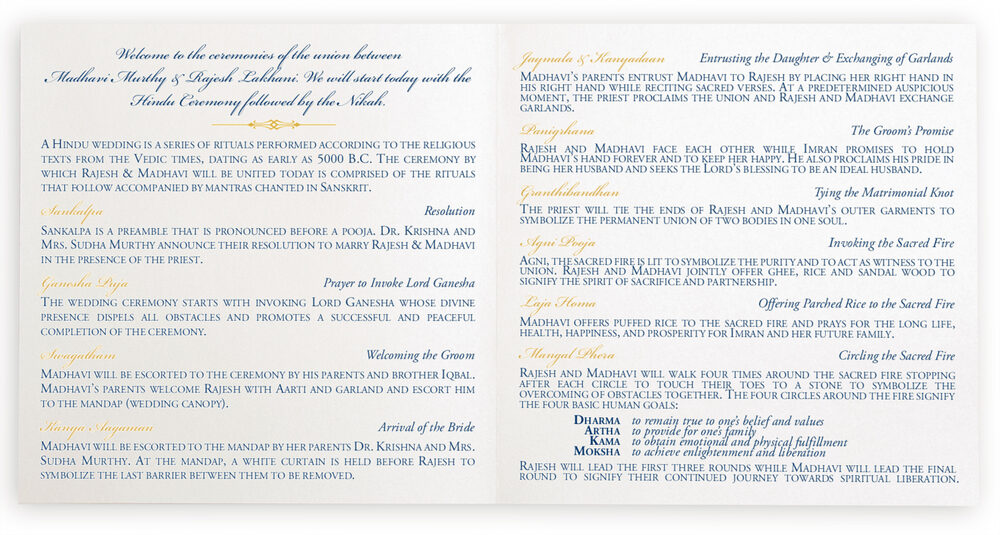 Welcome to the ceremonies of the union between
Madhavi Murthy & Rajesh Lakhani. We will start today with the
Hindu Ceremony followed by the Nikah.
A Hindu wedding is a series of rituals performed according to the religious
texts from the Vedic times, dating as early as 5000 B.C. The ceremony by
which Rajesh & Madhavi will be united today is comprised of the rituals
that follow accompanied by mantras chanted in Sanskrit.
Sankalpa Resolution
Sankalpa is a preamble that is pronounced before a pooja. Dr. Krishna and
Mrs. Sudha Murthy announce their resolution to marry Rajesh & Madhavi
in the presence of the priest.
Ganesha Puja Prayer to Invoke Lord Ganesha
The wedding ceremony starts with invoking Lord Ganesha whose divine
presence dispels all obstacles and promotes a successful and peaceful
completion of the ceremony.
Swagatham Welcoming the Groom
Madhavi will be escorted to the ceremony by his parents and brother Iqbal.
Madhavi's parents welcome Rajesh with Aarti and garland and escort him
to the mandap (wedding canopy).
Kanya Aagaman Arrival of the Bride
Madhavi will be escorted to the mandap by her parents Dr. Krishna and Mrs.
Sudha Murthy. At the mandap, a white curtain is held before Rajesh to
symbolize the last barrier between them to be removed.
Jaymala & Kanyadaan Entrusting the Daughter & Exchanging of Garlands
Madhavi's parents entrust Madhavi to Rajesh by placing her right hand in
his right hand while reciting sacred verses. At a predetermined auspicious
moment, the priest proclaims the union and Rajesh and Madhavi exchange
garlands.
Panigrhana The Groom's Promise
Rajesh and Madhavi face each other while Imran promises to hold
Madhavi's hand forever and to keep her happy. He also proclaims his pride in
being her husband and seeks the Lord's blessing to be an ideal husband.
Granthibandhan Tying the Matrimonial Knot
The priest will tie the ends of Rajesh and Madhavi's outer garments to
symbolize the permanent union of two bodies in one soul.
Agni Pooja Invoking the Sacred Fire
Agni, the sacred fire is lit to symbolize the purity and to act as witness to the
union. Rajesh and Madhavi jointly offer ghee, rice and sandal wood to
signify the spirit of sacrifice and partnership.
Laja Homa Offering Parched Rice to the Sacred Fire
Madhavi offers puffed rice to the sacred fire and prays for the long life,
health, happiness, and prosperity for Imran and her future family.
Mangal Phera Circling the Sacred Fire
Rajesh and Madhavi will walk four times around the sacred fire stopping
after each circle to touch their toes to a stone to symbolize the
overcoming of obstacles together. The four circles around the fire signify
the four basic human goals:
Dharma to remain true to one's belief and values
Artha to provide for one's family
Kama to obtain emotional and physical fulfillment
Moksha to achieve enlightenment and liberation
Rajesh will lead the first three rounds while Madhavi will lead the final
round to signify their continued journey towards spiritual liberation.